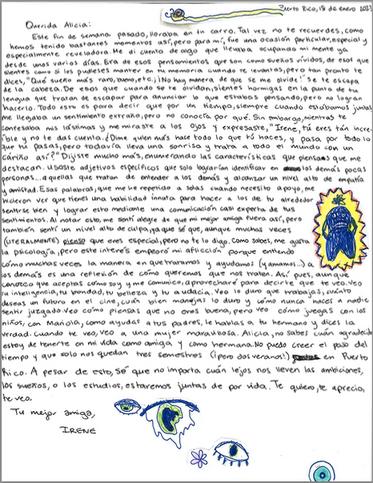 Puerto Rico, 18 de enero 2023
Querida Alicia:
Este fin de semana pasado, lloraba en tu carro. Tal vez no te recuerdes, como
hemos tenido bastantes momentos así, pero para mí, fue una ocasión particular, especial y
especialmente reveladora. Me di cuenta de algo que llevaba ocupando mi mente ya
desde unos varios días. Era de esos pensamientos que son como sueños vívidos, de esos que
sientes como si los pudieses mantener en tu memoria cuando te levantas, pero tan pronto te
dices, "Qué sueño más raro, bueno, etc.) ¡No hay manera de que se me olvide!" se te escapa
de la cabeza. De esos que cuando se te olvidan, sientes hormigas en la punta de tu
lengua que tratan de escapar para anunciar lo que estabas pensando, pero no logran
hacerlo. Todo esto es para decir que por un tiempo, siempre cuando estábamos juntas
me llegaba un sentimiento extraño, pero no conocía por qué. Sin embargo, mientras te
contestaba mis lástimas y me miraste a los ojos y expresaste, "Irene, tú eres tan increí-
ble y no te das cuenta. ¿Dime quién más hace todo lo que tú haces, y pasa por todo lo
que tú pasas, pero todavía lleva una sonrisa y trata a todo el mundo con un
cariño así?" Dijiste mucho más, enumerando las características que piensas que me
destacan. Usaste adjetivos específicos que solo lograrían identificar en los demás pocas
personas... aquellas que tratan de entender a los demás y alcanzar un nivel alto de empatía
y amistad. Esas palabras, que me he repetido a solas cuando necesito apoyo, me
hicieron ver que tienes una habilidad innata para hacer a los de tu alrededor
sentirse bien y lograr esto mediante una comunicación casi experta de tus
sentimientos. Al notar esto, me sentí alegre de que mi mejor amiga fuera así, pero
también sentí un nivel alto de culpa, ya que sé que, aunque muchas veces
(LITERALMENTE) pienso que eres especial, pero no te lo digo. Como sabes, me gusta
la psicología, pero este interés empeoró mi aflicción porque entiendo
cómo muchas veces la manera en que tratamos y ayudamos (y amamos...) a
los demás es una reflexión de cómo queremos que nos traten. Así pues, aunque
conozco que aceptas cómo soy y me comunico, aprovecharé para decirte que te veo. Veo
tu inteligencia, tu bondad, tu belleza y tu audacia. Veo lo duro que trabajas, cuánto
deseas un futuro en el cine, cuán bien manejas lo duro y cómo nunca haces a nadie
sentir juzgado. Veo cómo piensas que no eres buena, pero veo cómo juegas con los
niños, con Manola, cómo ayudas a tus padres, le hablas a tu hermano y dices la
verdad. Cuando te veo, veo a una mujer maravillosa. Alicia, no sabes cuán agradecida
estoy de tenerte en mi vida como amiga y como hermana. No puedo creer el paso del
tiempo y que solo nos quedan tres semestres (¡pero dos veranos!) en Puerto
Rico. A pesar de esto, sé que no importa cuán lejos nos lleven las ambiciones,
los sueños, o los estudios, estaremos juntas de por vida. Te quiero, te aprecio,
te veo.
Tu mejor amiga,
IRENE